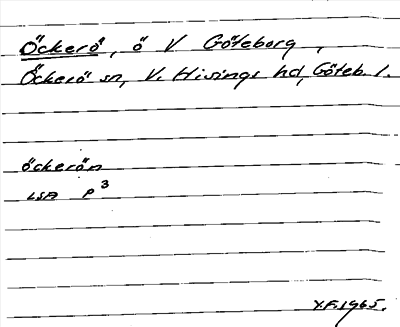 Öckerö, ö V Göteborg,
Öckerö sn, V. Hisings hd, Göteb. l.
öckerön
LSA P³
V.F. 1965.